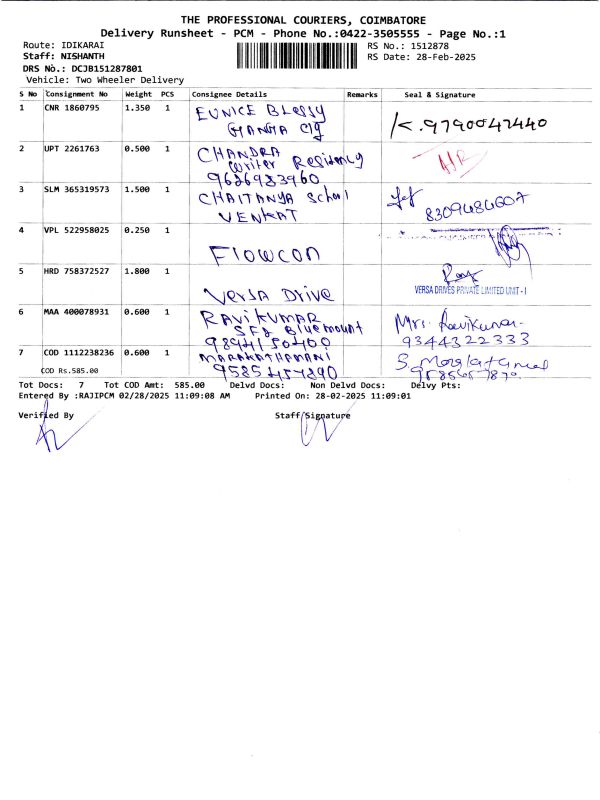 THE PROFESSIONAL COURIERS, COIMBATORE
Delivery Runsheet - PCM - Phone No.:0422-3505555 - Page No.:1
Route: IDIKARAI
RS No.: 1512878
Staff: NISHANTH
RS Date: 28-Feb-2025
DRS No.: DCJB151287801
Vehicle: Two Wheeler Delivery
S No Consignment No Weight PCS Consignee Details Remarks Seal & Signature
1 CNR 1860795 1.350 1 EUNICE BLESSY
K. 9790047440
2 UPT 2261763 0.500 1 CHANDRA
Writer Residency
9686983960
3 SLM 365319573 1.500 1 CHAITANYA School
VENKAT
8309484607
4 VPL 522958025 0.250 1
Flowcon
5 HRD 758372527 1.800 1
Versa Drive
VERSA DRIVES PRIVATE LIMITED UNIT - I
6 MAA 400078931 0.600 1 RAVIKUMAR
Mrs. Ravikumar
SF2 Bluemount
9894150400
9344322333
7 COD 1112238236 0.600 1 MARAKATHAMANI
COD Rs.585.00 9585457890
Tot Docs: 7 Tot COD Amt: 585.00 Delvd Docs: Non Delvd Docs: Delvy Pts:
Entered By :RAJIPCM 02/28/2025 11:09:08 AM Printed On: 28-02-2025 11:09:01
Verified By Staff/Signature